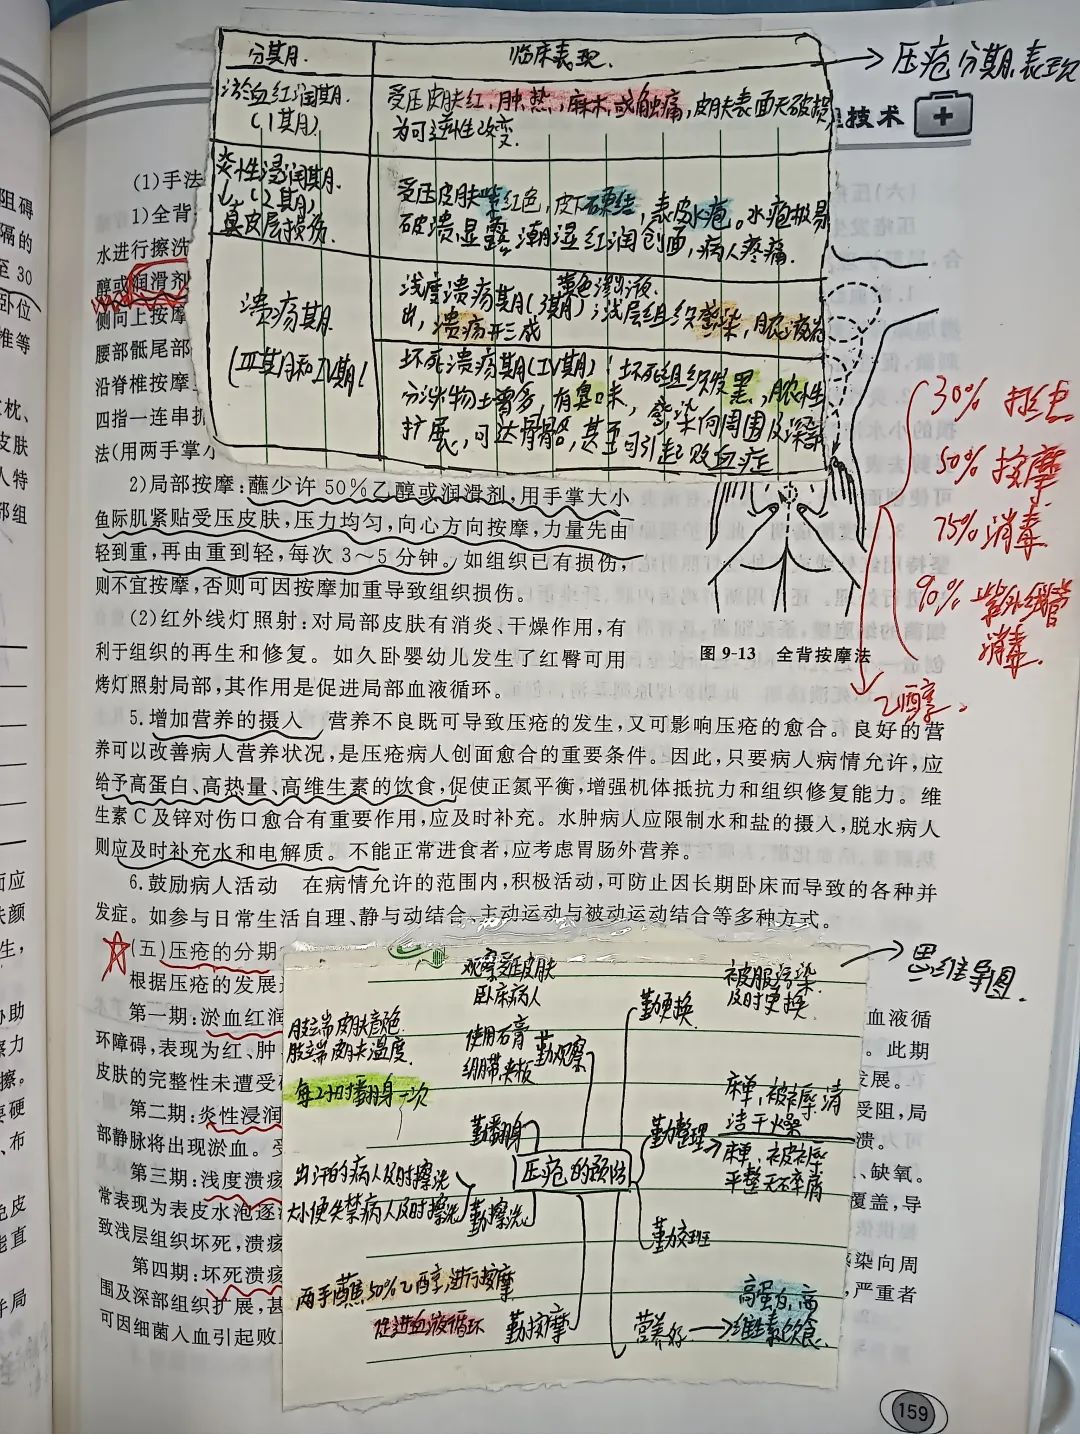 分期 临床表现
→压疮分期表现
淤血红润期
(1期)
受压皮肤红,肿,热,麻木,或触痛,皮肤表面无破损,
为可逆性改变.
技术
炎性浸润期
(2期)
真皮层损伤
受压皮肤紫红色,皮下硬结,表皮水疱。水疱极易
破溃,显露潮湿红润创面,病人疼痛.
溃疡期
(Ⅲ期和Ⅳ期)
浅度溃疡期(3期):浅层组织感染,脓液流
黄色渗出液.
出,溃疡形成
坏死溃疡期(Ⅳ期):坏死组织发黑,脓性
分泌物增多,有臭味,感染向周围及深部
扩展,可达骨骼,甚至可引起败血症
(1)手法
1)全背
水进行擦洗
醇或润滑剂
侧向上按摩
腰部骶尾部
沿脊椎按摩
四指一连串
法(用两手掌小
2)局部按摩:蘸少许50%乙醇或润滑剂,用手掌大小
鱼际肌紧贴受压皮肤,压力均匀,向心方向按摩,力量先由
轻到重,再由重到轻,每次3~5分钟。如组织已有损伤,
则不宜按摩,否则可因按摩加重导致组织损伤。
(2)红外线灯照射:对局部皮肤有消炎、干燥作用,有
利于组织的再生和修复。如久卧婴幼儿发生了红臀可用
烤灯照射局部,其作用是促进局部血液循环。
图9-13 全背按摩法
30%
50% 按摩
75% 消毒
90% 紫外线管
消毒.
乙醇.
5.增加营养的摄入 营养不良既可导致压疮的发生,又可影响压疮的愈合。良好的营
养可以改善病人营养状况,是压疮病人创面愈合的重要条件。因此,只要病人病情允许,应
给予高蛋白、高热量、高维生素的饮食,促使正氮平衡,增强机体抵抗力和组织修复能力。维
生素C及锌对伤口愈合有重要作用,应及时补充。水肿病人应限制水和盐的摄入,脱水病人
则应及时补充水和电解质。不能正常进食者,应考虑胃肠外营养。
6.鼓励病人活动 在病情允许的范围内,积极活动,可防止因长期卧床而导致的各种并
发症。如参与日常生活自理、静与动结合、主动运动与被动运动结合等多种方式。
(五)压疮的分期
根据压疮的发展
第一期:淤血红润 血液循
环障碍,表现为红、肿 。此期
皮肤的完整性未遭受 发展。
第二期:炎性浸润 受阻,局
部静脉将出现淤血。受 溃。
第三期:浅度溃疡 、缺氧。
常表现为表皮水泡逐 覆盖,导
致浅层组织坏死,溃疡
第四期:坏死溃疡 感染向周
围及深部组织扩展,甚 ,严重者
可因细菌入血引起败
→思维导图.
观察受压皮肤
卧床病人
肢端皮肤颜色
肢端皮肤温度.
使用石膏
绷带夹板
勤观察
每2小时翻身一次
勤翻身
压疮的预防
出汗的病人及时擦洗
大小便失禁病人及时擦洗
勤擦洗
两手蘸50%乙醇进行按摩
促进血液循环
勤按摩
勤更换
被服污染
及时更换
勤整理
床单,被褥清
洁干燥
床单、被褥
平整无碎屑
勤交班
营养好→
高蛋白,高
维生素饮食.
159
阻碍
隔的
至30
卧位
椎等
枕、
皮肤
人特
部组